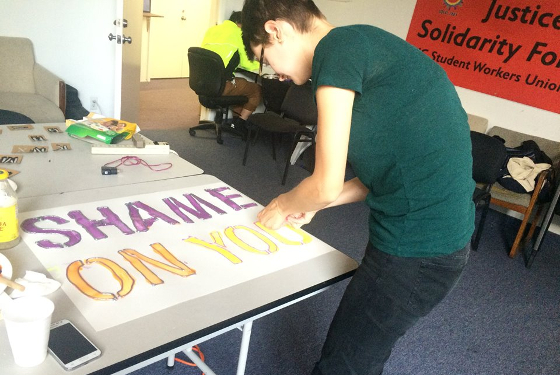 Justice
Solidarity For
Student Workers Union
SHAME
ON YOU